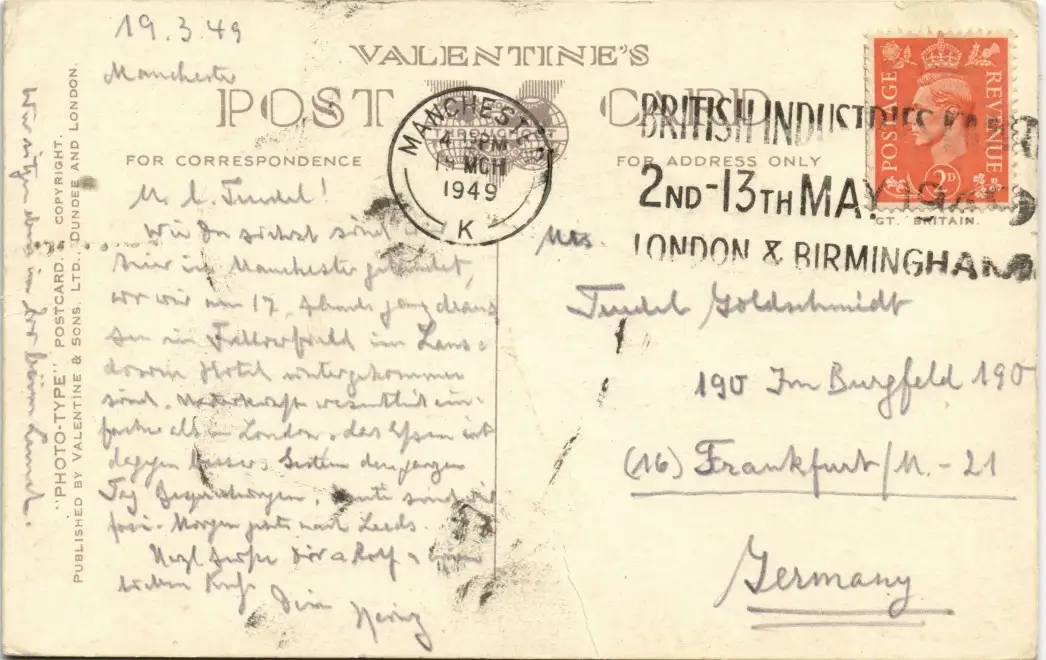 19.3.49
Manchester
VALENTINE'S
POST CARD
FOR CORRESPONDENCE
FOR ADDRESS ONLY
MANCHESTER
4 PM
19 MCH
1949
K
BRITISH INDUSTRIES FAIR
2ND-13TH MAY 1949
LONDON & BIRMINGHAM
POSTAGE REVENUE
2D
GT. BRITAIN.
M. l. Trudel!
Wie Du siehst sind
hier in Manchester gelandet,
wo wir am 17. Abends ganz draus
sen in Fallowfield im Lans-
downe Hotel untergekommen
sind. wesentlich ein-
facher als in London, das Essen
dagegen besser. den ganzen
Tag Besprechungen, heute sind
frei. Morgen gehts nach Leeds.
Herzl Grüße Dir a Rolf
lieben Kuß Dein Heinz
Wir sitzen beim Lunch.
Mrs.
Trudel Goldschmidt
190 Im Burgfeld 190
(16) Frankfurt/M.-21
Germany
"PHOTO-TYPE" POSTCARD. COPYRIGHT.
PUBLISHED BY VALENTINE & SONS. LTD., DUNDEE AND LONDON.